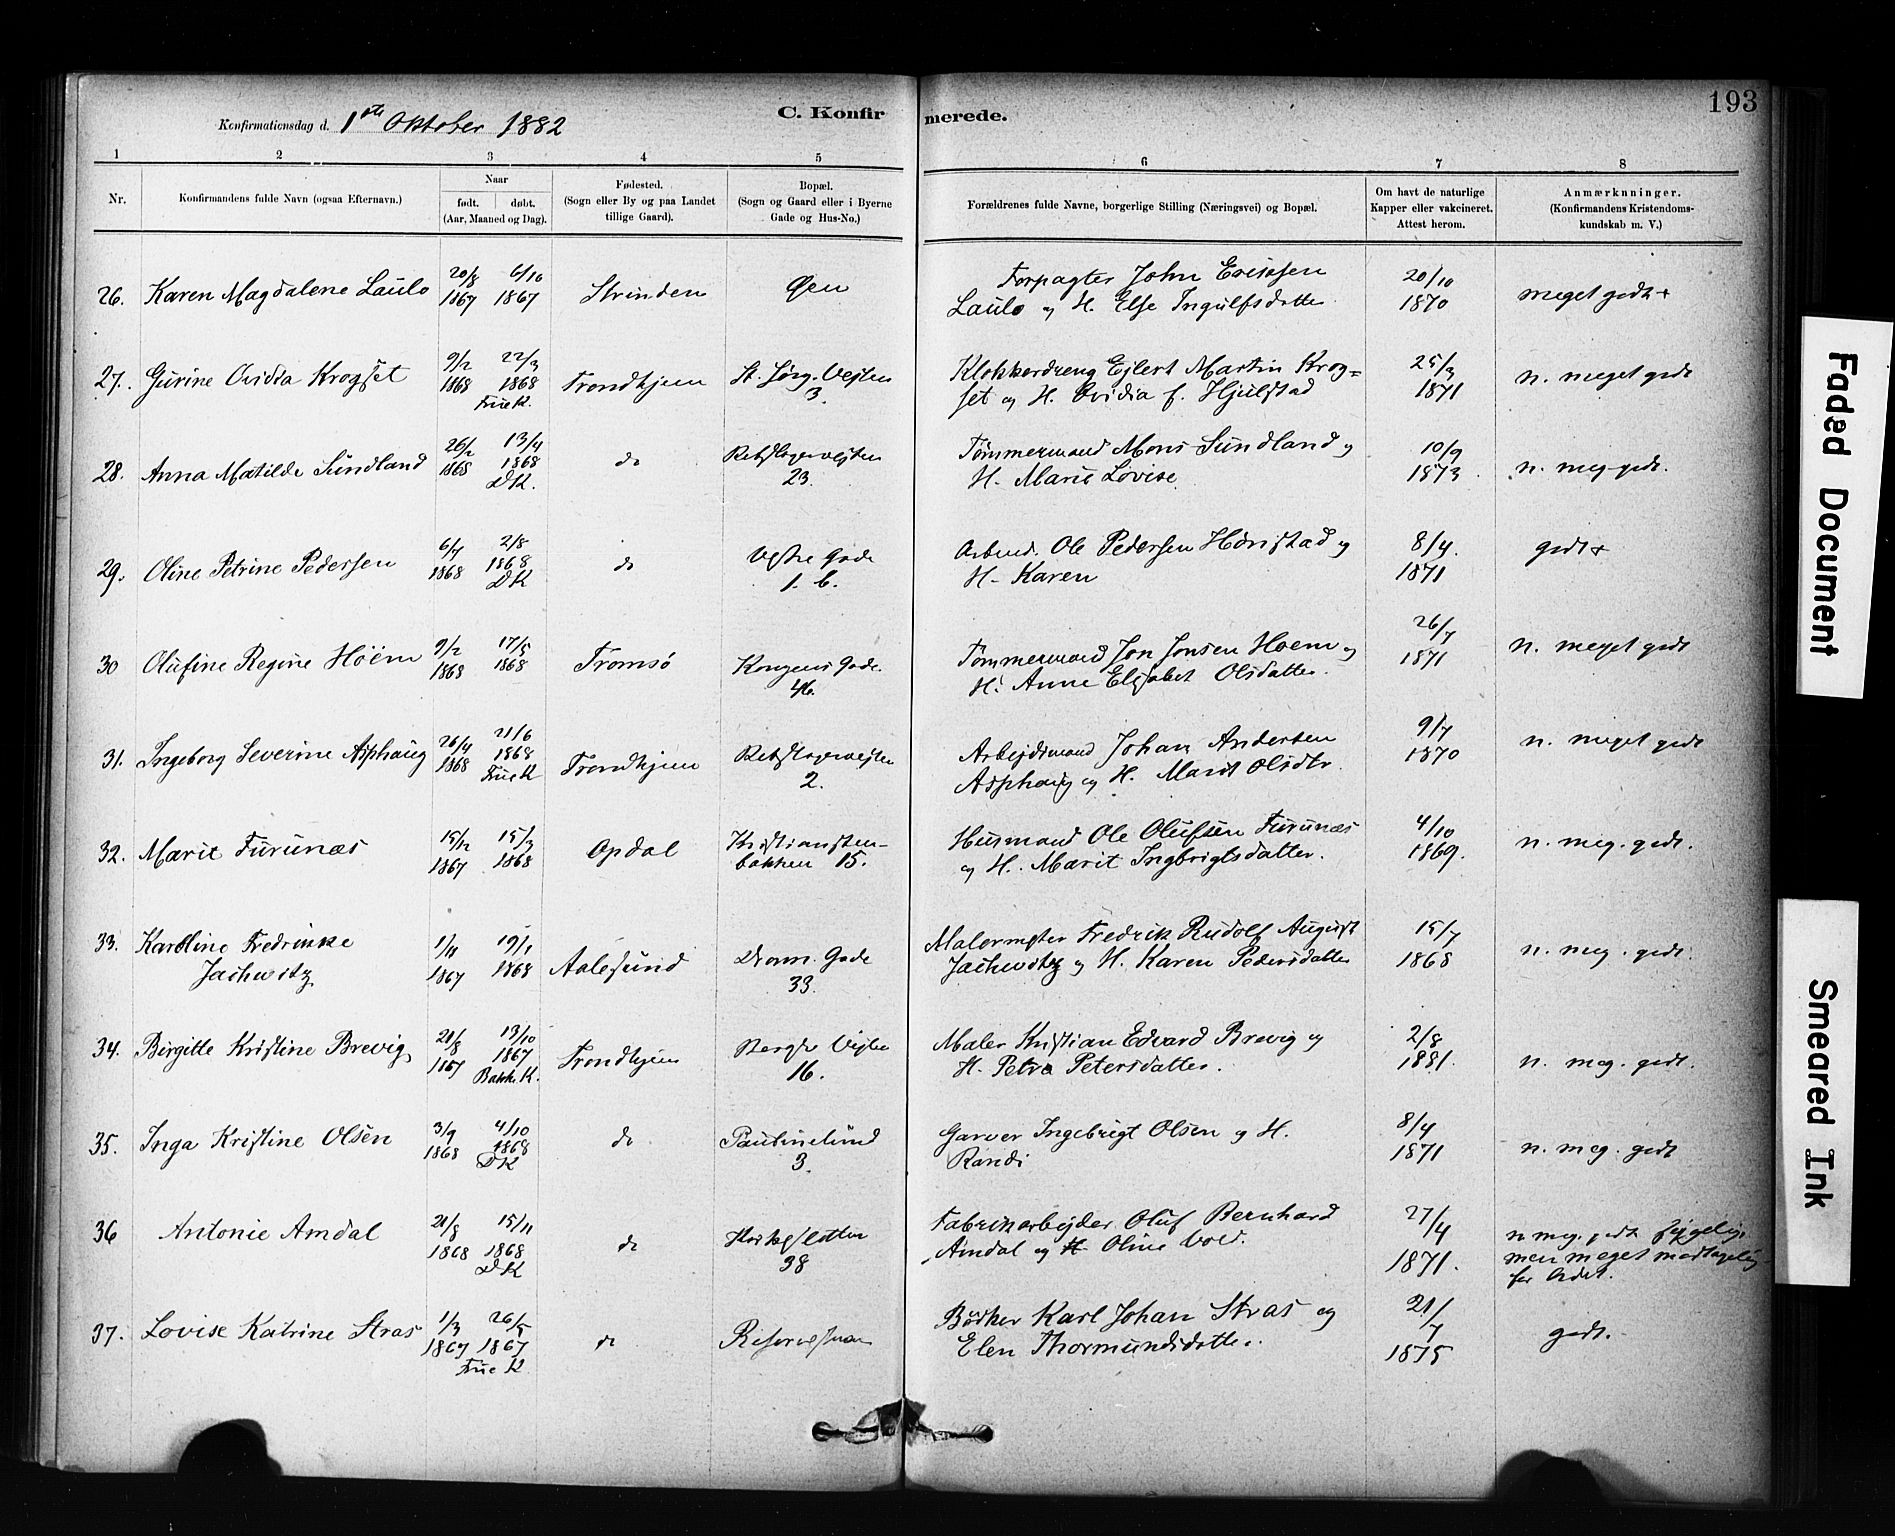 193
Konfirmationsdag d. 1ste Oktober 1882
C. Konfirmerede.
1 2 3 4 5 6 7 8
Nr.
Konfirmandens fulde Navn (ogsaa Efternavn.)
Naar
født. døbt.
(Aar, Maaned og Dag).
Fødested.
(Sogn eller By og paa Landet
tillige Gaard).
Bopæl.
(Sogn og Gaard eller i Byerne
Gade og Hus-No.)
Forældrenes fulde Navne, borgerlige Stilling (Næringsvei) og Bopæl.
Om havt de naturlige
Kapper eller vakcineret.
Attest herom.
Anmærkninger.
(Konfirmandens Kristendoms-
kundskab m. V.)
26. Karen Magdalene Laulo
20/8 6/10
1867 1867
Strinden
Øen
Forpagter John Ericksen
Laulo og H. Else Ingulfsdatter
20/10
1870
meget godt +
27. Gurine Ovidia Krogset
9/2 22/3
1868 1868
Frue K.
Trondhjem
St. Jørg. Vejten
3.
Klokkerdreng Ejlert Martin Krog=
set og H. Ovidia f. Hjulstad
25/3
1871
n. meget godt
28. Anna Matilde Sundland
26/2 13/4
1868 1868
D K.
do
Rebslagervejten
23.
Tømmermand Mons Sundland og
H. Marie Lovise
10/9
1873.
n. meg. godt.
29. Oline Petrine Pedersen
6/7 2/8
1868 1868
D K
do
Vestre Gade
1. b.
Arbmd. Ole Pedersen Haristad og
H. Karen
8/4.
1871
godt +
30 Olufine Regine Höem
9/2 17/5
1868 1868
Tromsø
Kongens Gade.
46.
Tømmermand Jon Jonsen Hoem og
H. Anne Elisabet Olsdatter.
26/7
1871
n. meget godt
31. Ingeborg Severine Asphaug
26/4 21/6
1868 1868
Frue K
Trondhjem
Rebslagervejten
2.
Arbejdsmand Johan Andersen
Asphaug og H. Marit Olsdtr.
9/7
1870
n. meget godt
32. Marit Furunæs
15/12 15/3
1867 1868
Opdal
Kristiansten-
bakken 15.
Husmand Ole Olufsen Furunæs
og H. Marit Ingbrigtsdatter.
4/10
1869.
n. meg. godt.
33. Karoline Fredrikke
Jachwitz
1/11 19/1
1867 1868
Aalesund
Dronn. Gade
33.
Malermester Fredrik Rudolf August
Jachwitz og H. Karen Pedersdatter
15/7
1868
n. meg. godt.
34. Birgitte Kristine Brevig
21/8 13/10
1867 1867
Bakke K.
Trondhjem
Bergs Vejten
16.
Maler Kristian Edvard Brevig og
H. Petra Petersdatter.
2/8
1881.
n. meg. godt.
35. Inga Kristine Olsen
3/9 4/10
1868 1868
D K
do
Paulinelund
3.
Garver Ingebrigt Olsen og H.
Randi
8/4
1871
n. meg. godt
36 Antonie Amdal
21/8 15/11
1868 1868
D K
do
38
Fabrikarbejder Oluf Bernhard
Amdal og H. Oline Vold.
27/4
1871.
n meg. godt
men meget modtagelig
for Ordet.
37. Lovise Katrine Stras
1/3 26/5
1867 1867
Frue K
do
Bødker Karl Johan Stras og
Elen Thormundsdatter.
21/7
1875
godt.
Faded Document
Smeared Ink